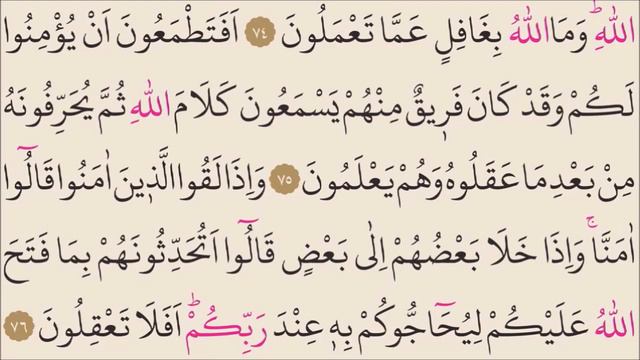 اللّٰهِۜ وَمَا اللّٰهُ بِغَافِلٍ عَمَّا تَعْمَلُونَ ٧٤ اَفَتَطْمَعُونَ اَنْ يُؤْمِنُوا
لَكُمْ وَقَدْ كَانَ فَر۪يقٌ مِنْهُمْ يَسْمَعُونَ كَلَامَ اللّٰهِ ثُمَّ يُحَرِّفُونَهُ
مِنْ بَعْدِ مَا عَقَلُوهُ وَهُمْ يَعْلَمُونَ ٧٥ وَاِذَا لَقُوا الَّذ۪ينَ اٰمَنُوا قَالُٓوا
اٰمَنَّاۚ وَاِذَا خَلَا بَعْضُهُمْ اِلٰى بَعْضٍ قَالُٓوا اَتُحَدِّثُونَهُمْ بِمَا فَتَحَ
اللّٰهُ عَلَيْكُمْ لِيُحَٓاجُّوكُمْ بِه۪ عِنْدَ رَبِّكُمْۜ اَفَلَا تَعْقِلُونَ ٧٦